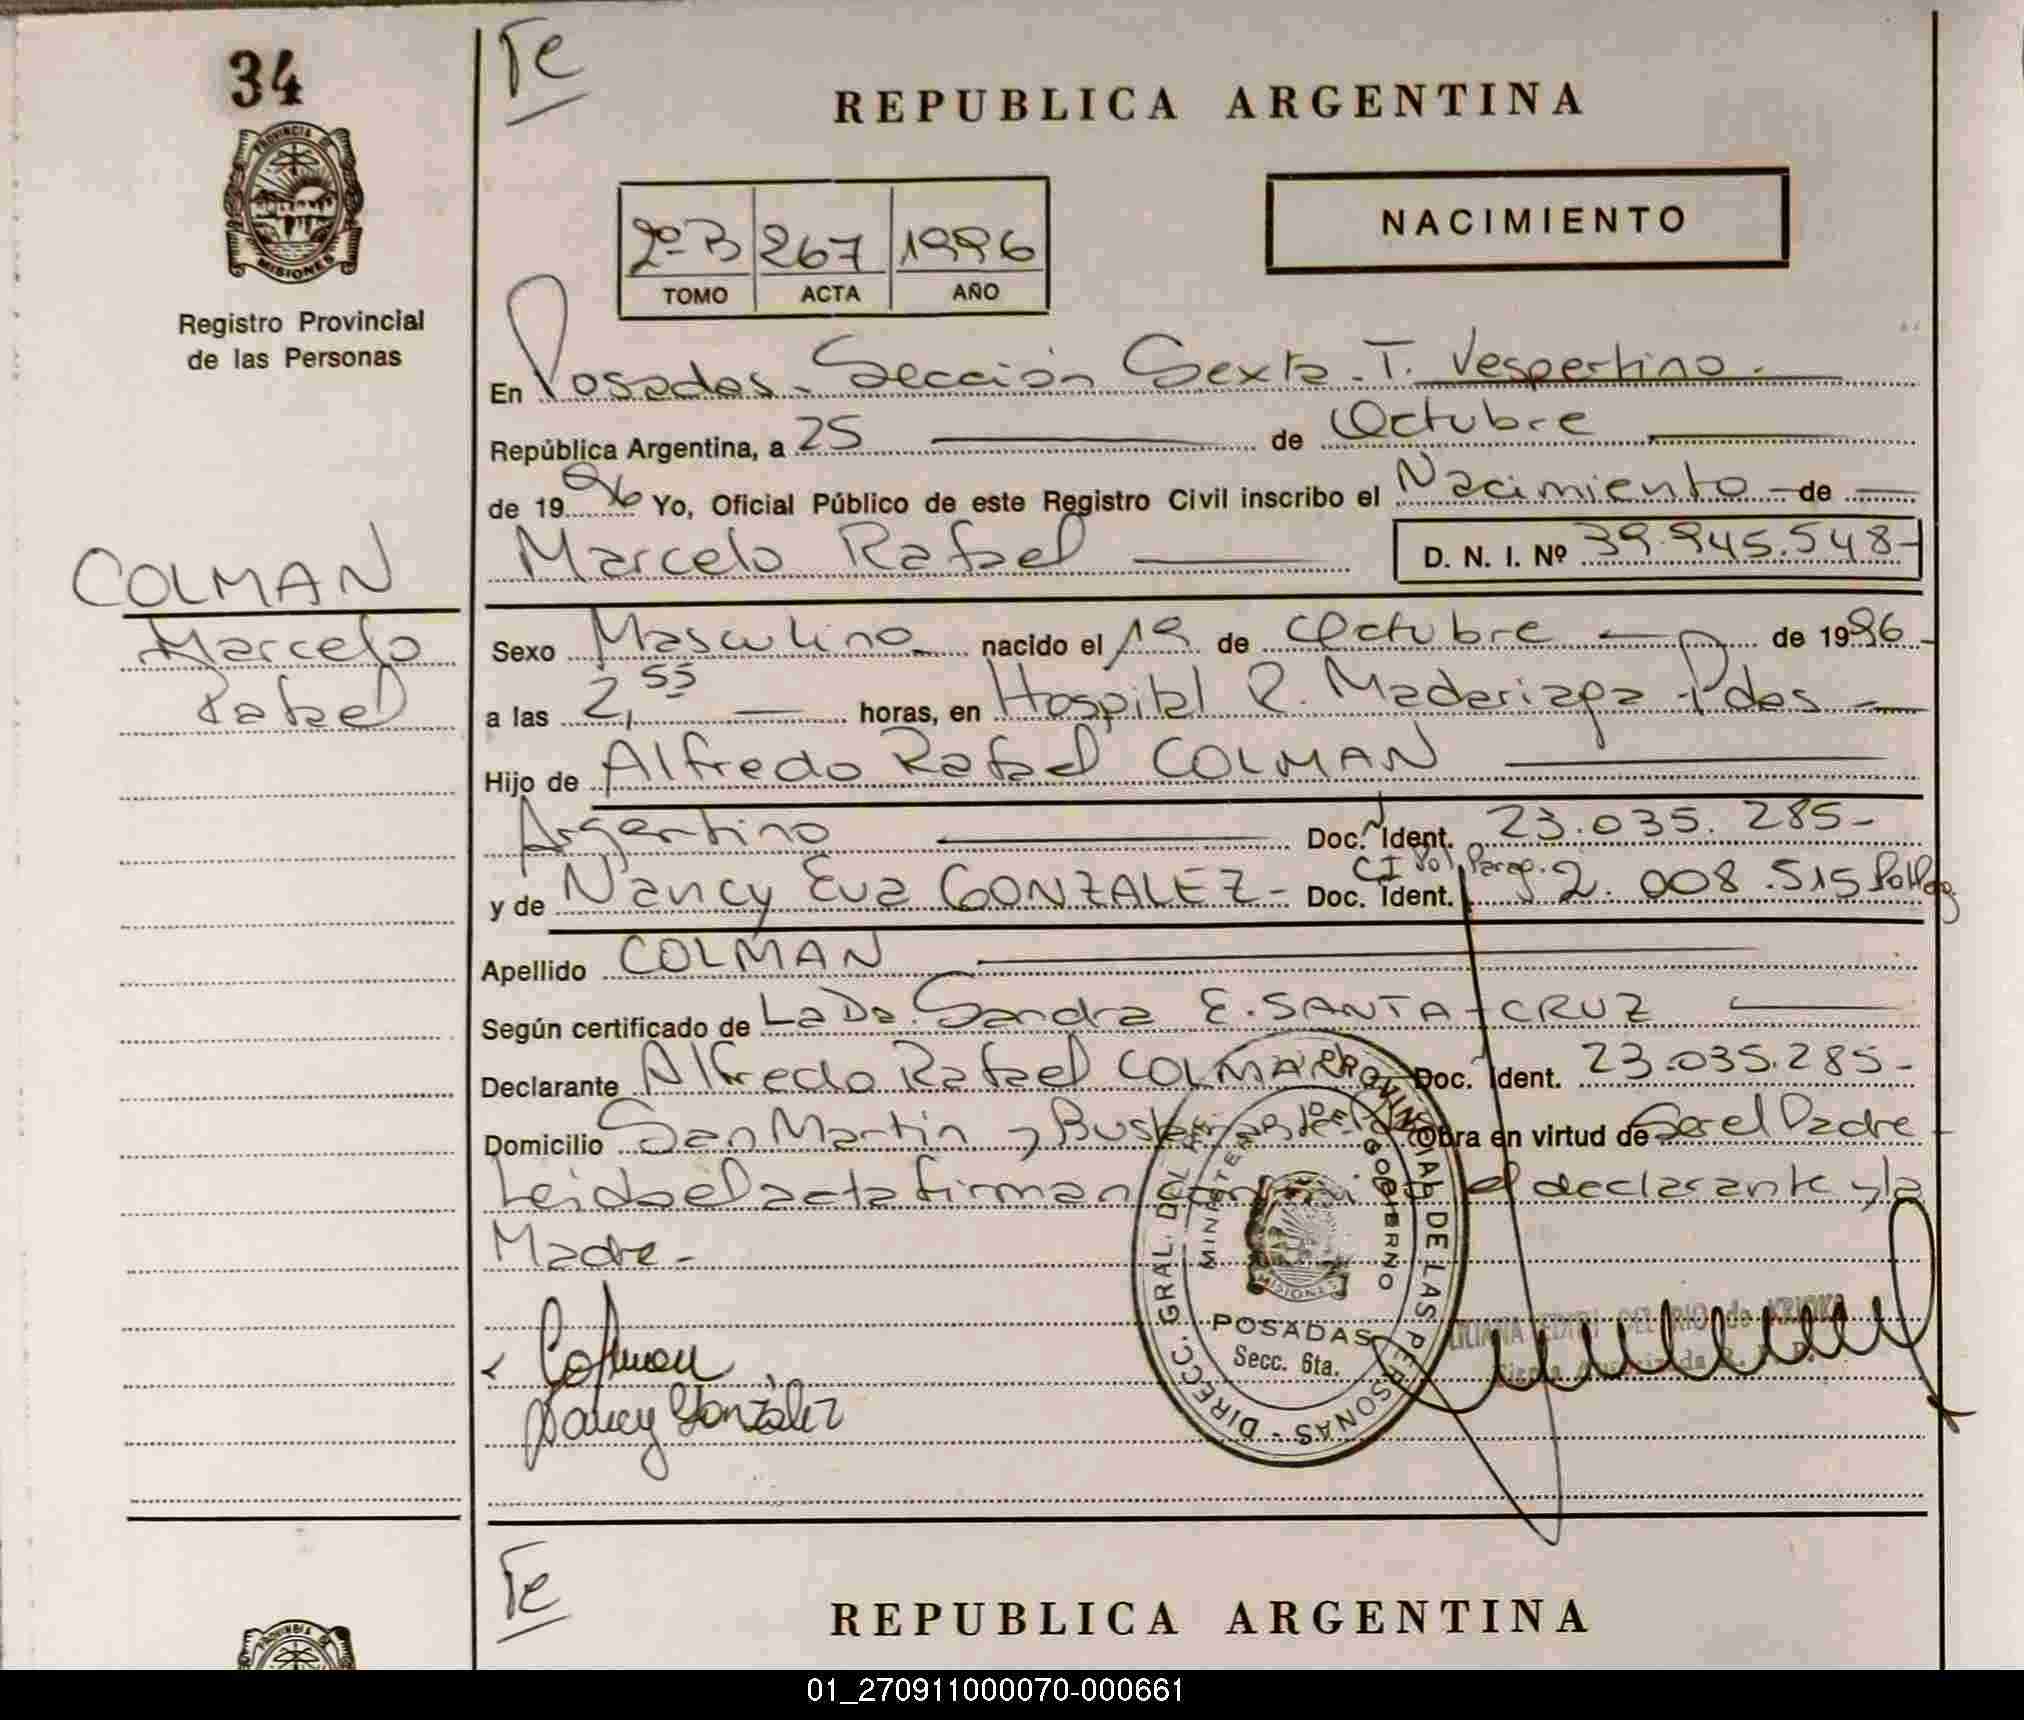 34
Te
REPUBLICA ARGENTINA
PROVINCIA DE
MISIONES
Registro Provincial
de las Personas
2º B 267 1996
TOMO ACTA AÑO
NACIMIENTO
En Posadas - Sección Sexta - T. Vespertino.
República Argentina, a 25 de Octubre
de 1996 Yo, Oficial Público de este Registro Civil inscribo el Nacimiento de
Marcelo Rafael D. N. I. Nº 39.945.548-
COLMAN
Marcelo
Rafael
Sexo Masculino nacido el 19 de Octubre de 1996
a las 2,55 horas, en Hospital R. Madariaga - Pdas
Hijo de Alfredo Rafael COLMAN
Argentino Doc. Ident. 23.035.285-
y de Nancy Eva GONZALEZ - Doc. Ident. CI Pol. Parag. 2.008.515
Apellido COLMAN
Según certificado de La Da. Sandra E. SANTA-CRUZ
Declarante Alfredo Rafael COLMAN Doc. Ident. 23.035.285-
Domicilio San Martin y Obra en virtud de Ser el Padre
Leida el acta firman el declarante y la
Madre-
Colman
Nancy González
DIRECC. GRAL. DEL REG. PROVINCIAL DE LAS PERSONAS -
MINISTERIO DE GOBIERNO
MISIONES
POSADAS
Secc. 6ta.
LILIANA DEL RIO de
Firma Autorizada R. P. P.
Te
REPUBLICA ARGENTINA
PROVINCIA DE
01_270911000070-000661